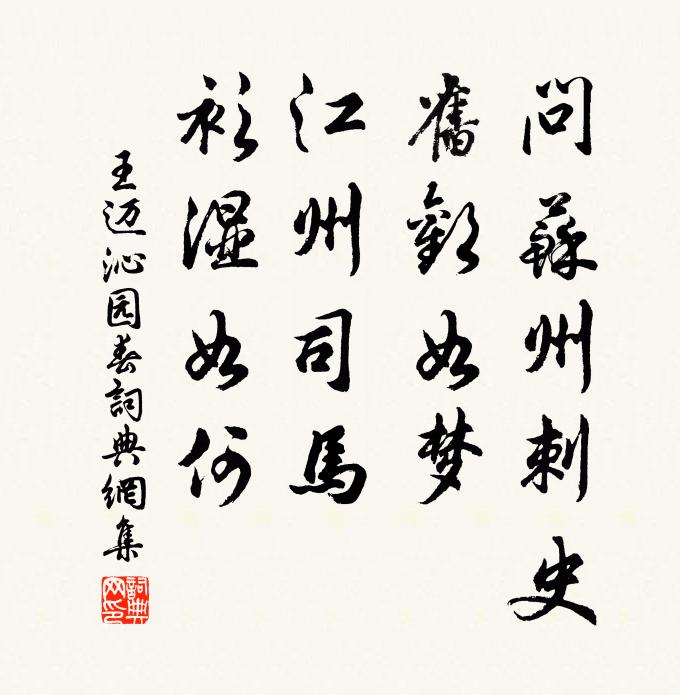 問蘇州刺史
舊歡如梦
江州司馬
衫濕如何
王迈沁园春詞典網集
詞典网印